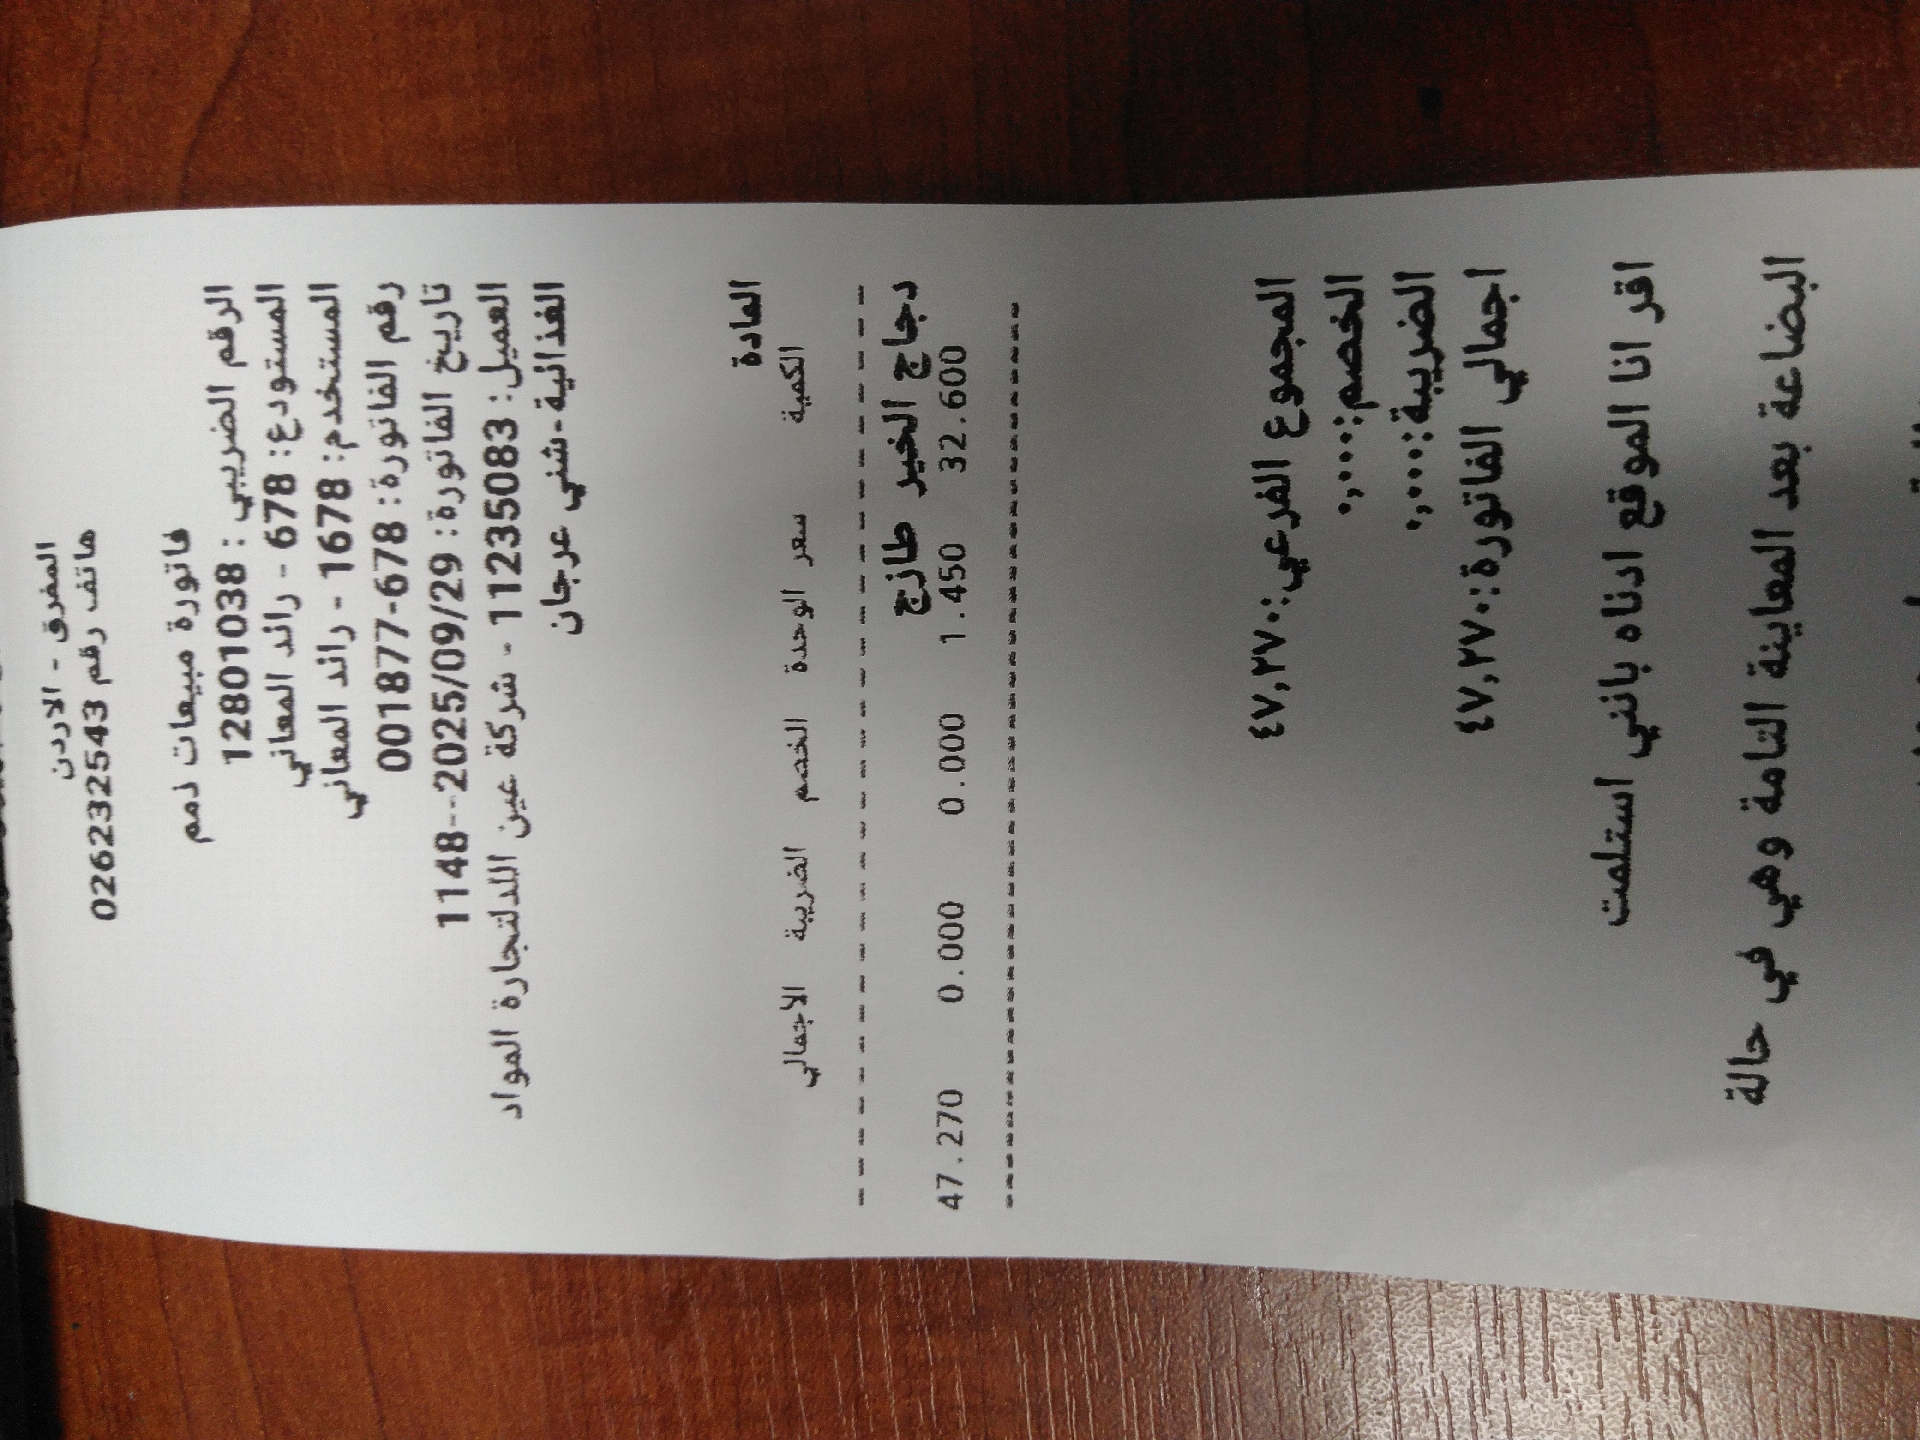 المفرق - الاردن
هاتف رقم 026232543
فاتورة مبيعات ذمم
الرقم الضريبي : 12801038
المستودع: 678 - رائد المعاني
المستخدم: 1678 - رائد المعاني
رقم الفاتورة: 678-001877
تاريخ الفاتورة: 2025/09/29--1148
العميل: 11235083 - شركة عين اللدلتجارة المواد
الغذائية-شني عرجان
المادة
الكمية سعر الوحدة الخصم الضريبة الاجمالي
دجاج الخير طازج
32.600 1.450 0.000 0.000 47.270
المجموع الفرعي:٤٧,٢٧٠
الخصم:٠,٠٠٠
الضريبة:٠,٠٠٠
اجمالي الفاتورة:٤٧,٢٧٠
اقر انا الموقع ادناه بانني استلمت
البضاعة بعد المعاينة التامة وهي في حالة